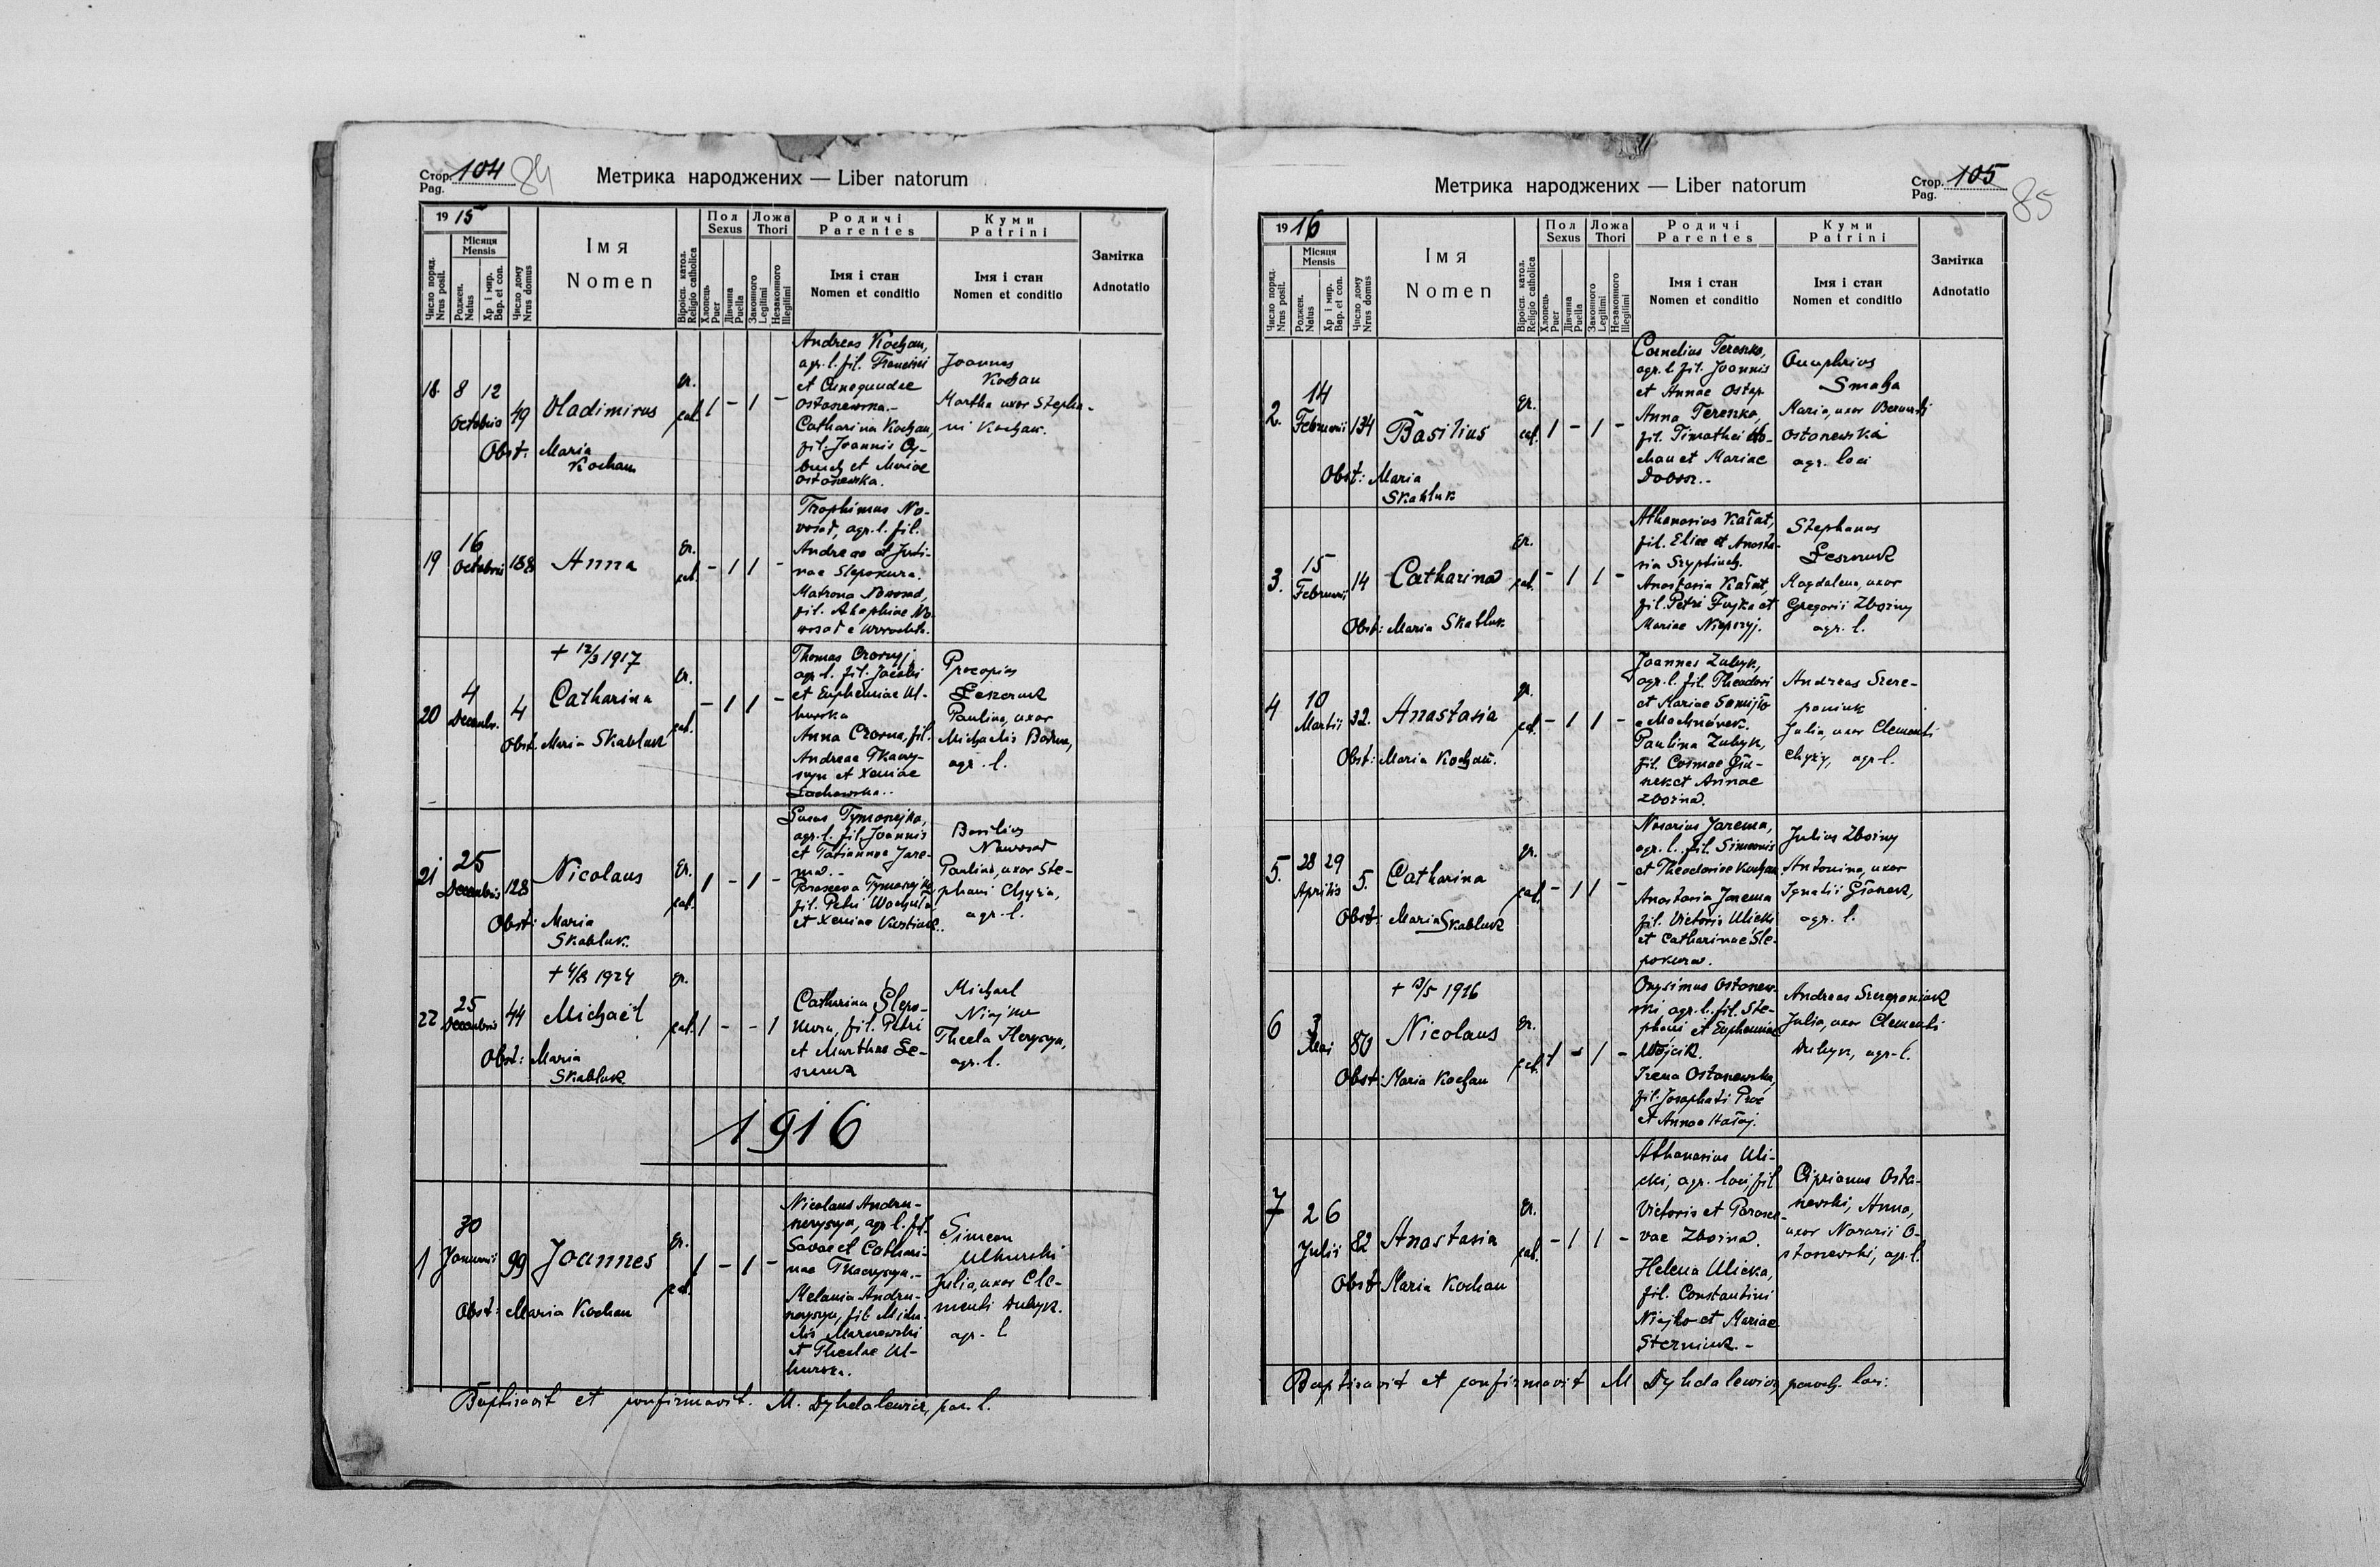 Стор. 104 84
Pag.
Метрика народжених — Liber natorum
19 15
Місяця
Mensis
Число поряд.
Nrus posit.
Роджен.
Natus
Хр і мир.
Bap. et con.
Число дому
Nrus domus
Імя
Nomen
Віроісп. катол.
Religio catholica
Пол
Sexus
Хлопець
Puer
Дівчина
Puella
Ложа
Thori
Законного
Legitimi
Незаконного
Illegitimi
Родичі
Parentes
Імя і стан
Nomen et conditio
Куми
Patrini
Імя і стан
Nomen et conditio
Замітка
Adnotatio
18 8 12
Octobris 49 Vladimirus
gr.
cat. 1 - 1 -
Obst: Maria
Kochan
Andreas Kochan,
agr. l. fil. Francisci
et Cunegundae
Ostanewska.-
Catharina Kochan,
fil. Joannis
et Mariae
Ostanewska.
Joannes
Kochan
Martha uxor Stepha-
ni Kochan.
19 16
Octobris 138 Anna
gr.
cat. - 1 1 -
Trophimus No-
vosad, agr. l. fil.
Andreae et Justi-
nae Slepokura.
Matrona Novosad,
fil. No-
wosad e
20 4
Decembr. 4
+ 12/3 1917
Catharina
gr.
cat. - 1 1 -
Obst. Maria Skabluk
Thomas Czornyj
agr. l. fil. Jacobi
et Euphemiae Ul-
hurska
Anna Czorna, fil.
Andreae Tkaczy-
szyn et Xeniae
Lachowska..
Procopius
Leszczuk
Paulina, uxor
Michaelis
agr. l.
21 25
Decembris 128 Nicolaus
gr.
cat. 1 - 1 -
Obst: Maria
Skabluk.
Lucas Tymonejko,
agr. l. fil. Joannis
et Tatiannae Jare-
ma.-
Parasceva Tymonejko
fil. Petri
et Xeniae
Basilius
Nowosad
Paulina, uxor Ste-
phani Chyza,
agr. l.
22 25
Decembris 44
+ 4/8 1924
Michaël
gr.
cat. 1 - - 1
Obst: Maria
Skabluk
Catharina Slepo-
kura, fil. Petri
et Marthae Le-
szczuk
Michael
Niejko
Thecla
agr. l.
1916
1 30
Januarii 99 Joannes
gr.
cat. 1 - 1 -
Obst: Maria Kochan
Nicolaus Andru-
szczyszyn, agr. l. fil.
Savae et Cathari-
nae Tkaczyszyn.-
Melania Andru-
szczyszyn, fil. Micha-
elis
et Theclae Ul-
hurska.
Simeon
Ulhurski
Julia, uxor Cle-
menti Dubyk.
agr. l
Baptisavit et confirmavit. M. Dyhdalewicz, par. l.
Метрика народжених — Liber natorum
Стор. 105
Pag. 85
19 16
Місяця
Mensis
Число поряд.
Nrus posit.
Роджен.
Natus
Хр і мир.
Bap. et con.
Число дому
Nrus domus
Імя
Nomen
Віроісп. катол.
Religio catholica
Пол
Sexus
Хлопець
Puer
Дівчина
Puella
Ложа
Thori
Законного
Legitimi
Незаконного
Illegitimi
Родичі
Parentes
Імя і стан
Nomen et conditio
Куми
Patrini
Імя і стан
Nomen et conditio
Замітка
Adnotatio
2. 14
Februarii 134 Basilius
gr.
cat. 1 - 1 -
Obst: Maria
Skabluk
Cornelius Tereszko,
agr. l. fil. Joannis
et Annae Ostap
Anna Tereszko,
fil. Timothei
et Mariae
Onuphrius
Smaha
Maria, uxor
Ostanewska
agr. loci
3. 15
Februarii 14 Catharina
gr.
cat. - 1 1 -
Obst: Maria Skabluk
Athanasius Kałat,
fil. Eliae et Anasta-
sia
Anastasia Kałat,
fil. Petri Fujka et
Mariae
Stephanus
Leszczuk
Magdalena, uxor
Gregorii Zboiny
agr. l.
4 10
Martii 32. Anastasia
gr.
cat. - 1 1 -
Obst: Maria Kochan.
Joannes Zubyk,
agr. l. fil. Theodori
et Mariae
e Machnówek.
Paulina Zubyk,
fil. Cosmae
et Annae
Zboina.
Andreas Szcze-
paniuk
Julia, uxor Clementi
Chyży, agr. l.
5. 28 29
Aprilis 5. Catharina
gr.
cat. - 1 1 -
Obst: Maria Skabluk
Nasarius Jarema,
agr. l. fil. Simeonis
et Theodorae Kochan.
Anastasia Jarema
fil. Victoris Ulicki
et Catharinae Sle-
pokura.
Julius Zboiny
Antonina, uxor
Ignatii
agr. l.
6 3
Mai 80
+ /5 1916
Nicolaus
gr.
cat. 1 - 1 -
Obst: Maria Kochan
Onysimus Ostanew-
ski, agr. l. fil. Ste-
phani et Euphemiae
Wojcik.
Irena Ostanewska,
fil. Josaphati
et Annae
Andreas Szczepaniuk
Julia, uxor Clementi
Dubyk, agr. l.
7 26
Julii 82 Anastasia
gr.
cat. - 1 1 -
Obst: Maria Kochan
Athanasius Uli-
cki, agr. loci, fil
Victoris et Parasce-
vae Zboina.
Helena Ulicka,
fil. Constantini
Niejko et Mariae
Sterniuk.-
Ciprianus Osta-
newski, Anna,
uxor Nasarii O-
stanewski, agr. l.
Baptisavit et confirmavit M Dyhdalewicz paroch. loci.